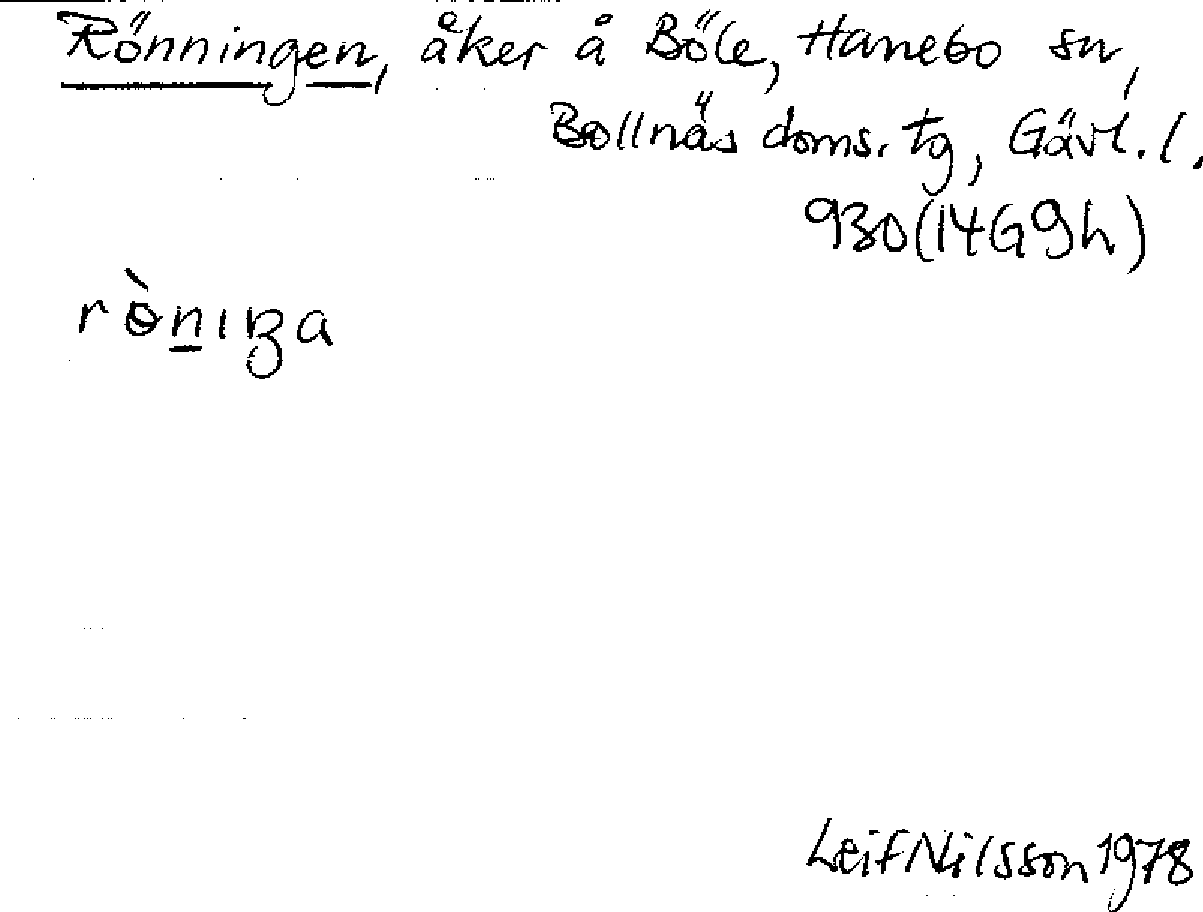 Rönningen, åker å Böle, Hanebo sn,
Bollnäs doms. tg, Gävl. l.
930(14G9h)
rò̵n̲ıŋa
Leif Nilsson 1978